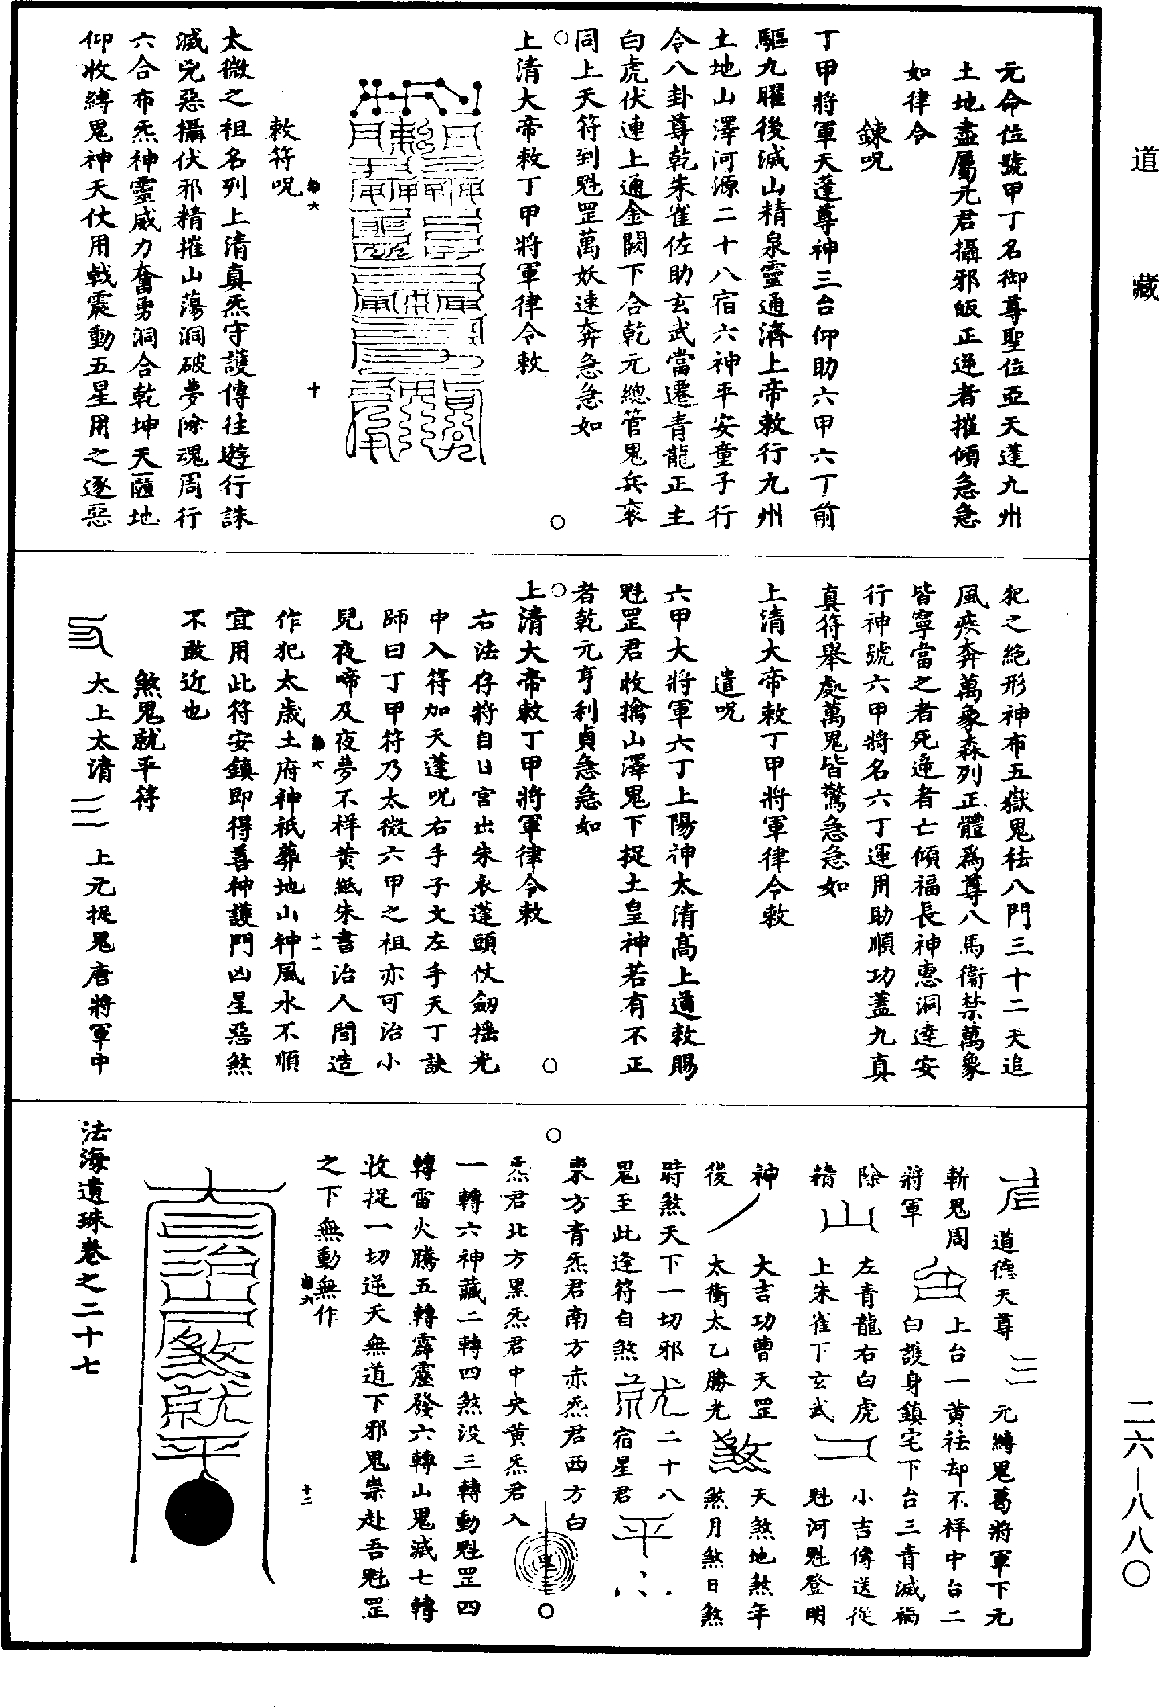 道藏
元命位號甲丁名御尊聖位亞天蓬九州
土地盡屬元君攝邪皈正逆者摧傾急急
如律令
鍊呪
丁甲將軍天蓬尊神三台仰助六甲六丁前
驅九曜後滅山精泉靈通濟上帝敕行九州
土地山澤河源二十八宿六神平安童子行
令八卦尊乾朱雀佐助玄武當遷青龍正主
白虎伏連上通金闕下合乾元總管鬼兵來
同上天符到魁罡萬妖速奔急急如
上清大帝敕丁甲將軍律令敕
敕符呪
十
太微之祖名列上清真炁守護傳往遊行誅
滅兇惡攝伏邪精摧山蕩洞破夢除魂周行
六合布炁神靈威力奮勇洞合乾坤天匯地
仰收縛鬼神天仗用戟震動五星用之逐惡
犯之絕形神布五嶽鬼祛八門三十二天追
風疾奔萬象森列正體為尊八馬衛禁萬象
皆寧當之者死逆者亡傾福長神惠洞達安
行神號六甲將名六丁運用助順功蓋九真
真符舉處萬鬼皆驚急急如
上清大帝敕丁甲將軍律令敕
遣呪
六甲大將軍六丁上陽神太清高上道敕賜
魁罡君收擒山澤鬼下捉土皇神若有不正
者乾元亨利貞急急如
上清大帝敕丁甲將軍律令敕
右法存將自日宮出朱衣蓬頭仗劒搖光
中入符加天蓬呪右手子文左手天丁訣
師曰丁甲符乃太微六甲之祖亦可治小
兒夜啼及夜夢不祥黃紙朱書治人間造
作犯太歲土府神祇葬地山神風水不順
十一
宜用此符安鎮即得善神護門凶星惡煞
不敢近也
煞鬼就平符
大上太清 上元捉鬼唐將軍中
道德天尊 元縛鬼葛將軍下元
斬鬼周 上台一黃祛却不祥中台二
將軍 白護身鎮宅下台三青滅禍
除 左青龍右白虎 小吉傳送從
精 上朱雀下玄武 魁河魁登明
神 大吉功曹天罡 天煞地煞年
後 太衝太乙勝光 煞月煞日煞
時煞天下一切邪 二十八
鬼至此逢符自煞 宿星君
東方青炁君南方赤炁君西方白
炁君北方黑炁君中央黃炁君入
一轉六神藏二轉四煞没三轉動魁罡四
轉雷火騰五轉霹靂發六轉山鬼滅七轉
收捉一切逆天無道下邪鬼祟赴吾魁罡
之下無動無作
十二
法海遺珠卷之二十七
二六—八八〇